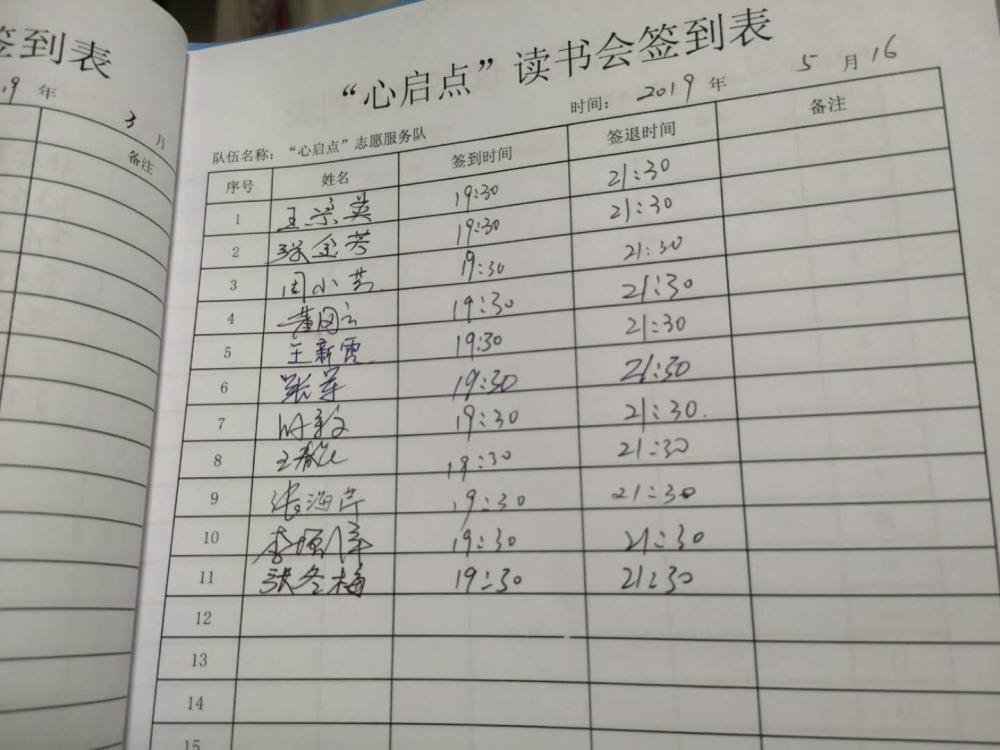 签到表
19 年 3 月
备注
“心启点”读书会签到表
队伍名称：“心启点”志愿服务队 时间： 2019 年 5 月 16
序号 姓名 签到时间 签退时间 备注
1 王崇英 19:30 21:30
2 张金芳 19:30 21:30
3 周小芳 19:30 21:30
4 黄国云 19:30 21:30
5 王新霞 19:30 21:30
6 张萍 19:30 21:30
7 19:30 21:30
8 19:30 21:30
9 张海芹 19:30 21:30
10 19:30 21:30
11 张冬梅 19:30 21:30
12
13
14
15